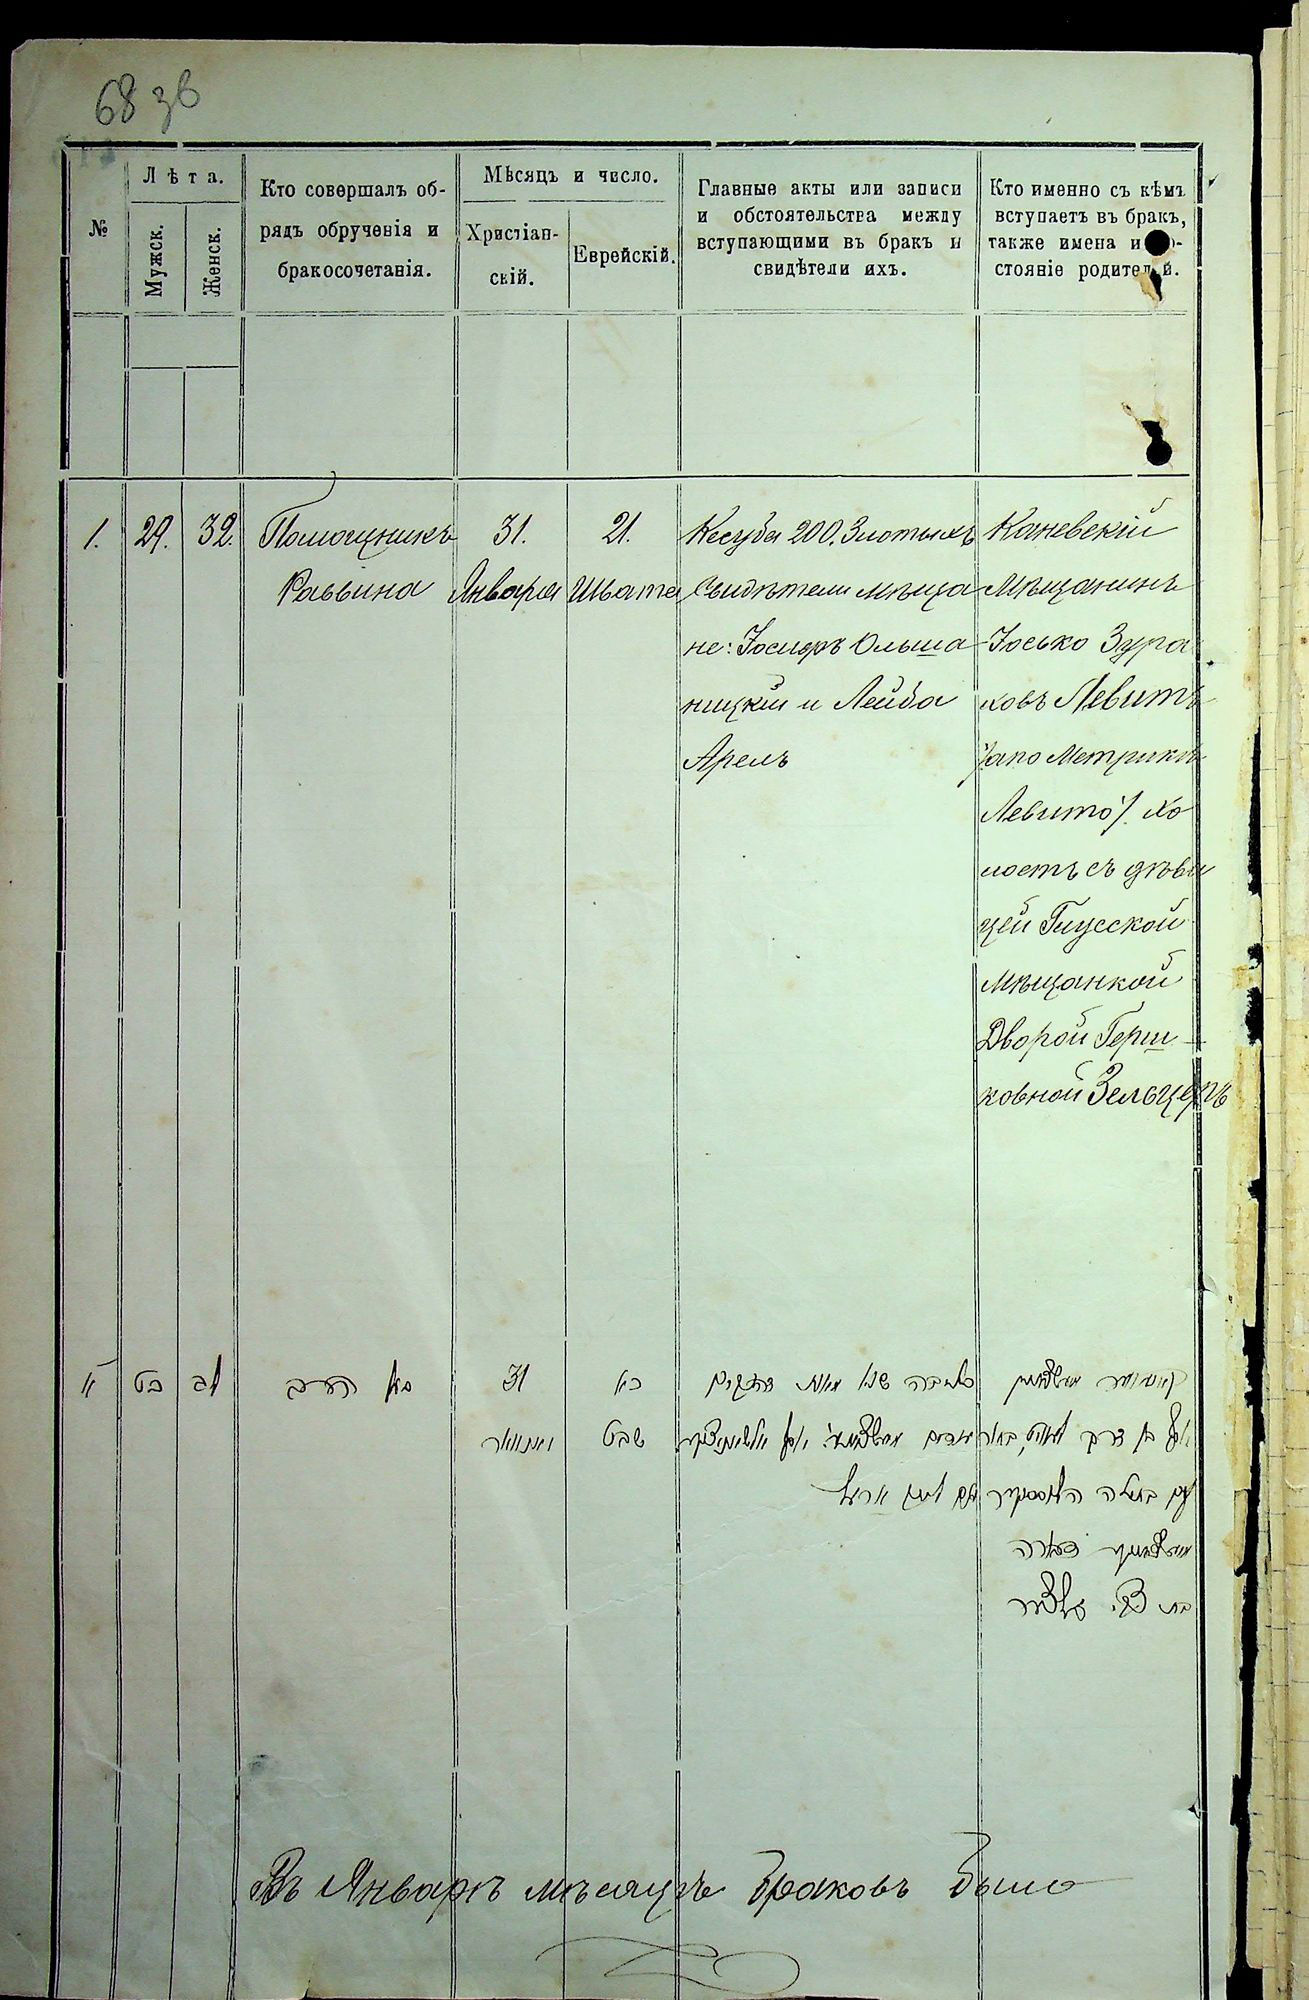 68 зв
№
Лѣта.
Мужск.
Женск.
Кто совершалъ об-
рядъ обрученія и
бракосочетанія.
Мѣсяцъ и число.
Христіан-
скій.
Еврейскій.
Главные акты или записи
и обстоятельства между
вступающими въ бракъ и
свидѣтели ихъ.
Кто именно съ кѣмъ
вступаетъ въ бракъ,
также имена и
стояніе родителей.
1.
29.
32.
Помощникъ
Раввина
31.
Января
21.
Швата
Кесуба 200. Злотыхъ
Свидѣтели мѣща
не: Іосифъ Ольша
ницкій и Лейба
Арелъ
Каневскій
Мѣщанинъ
Іосько Зура
ховъ Левитъ
/апо Метрикѣ
Левито/. Хо
лостъ съ дѣви
цей Глусской
Мѣщанкой
Дворой Герш
ковной Зельцеръ
א
כט
לב
הרב
31
יאנוואר
כא
שבט
כתובה מאות
עם בתולה
דבורה
בת צבי זעלצער
Въ Январѣ мѣсяцѣ браковъ было